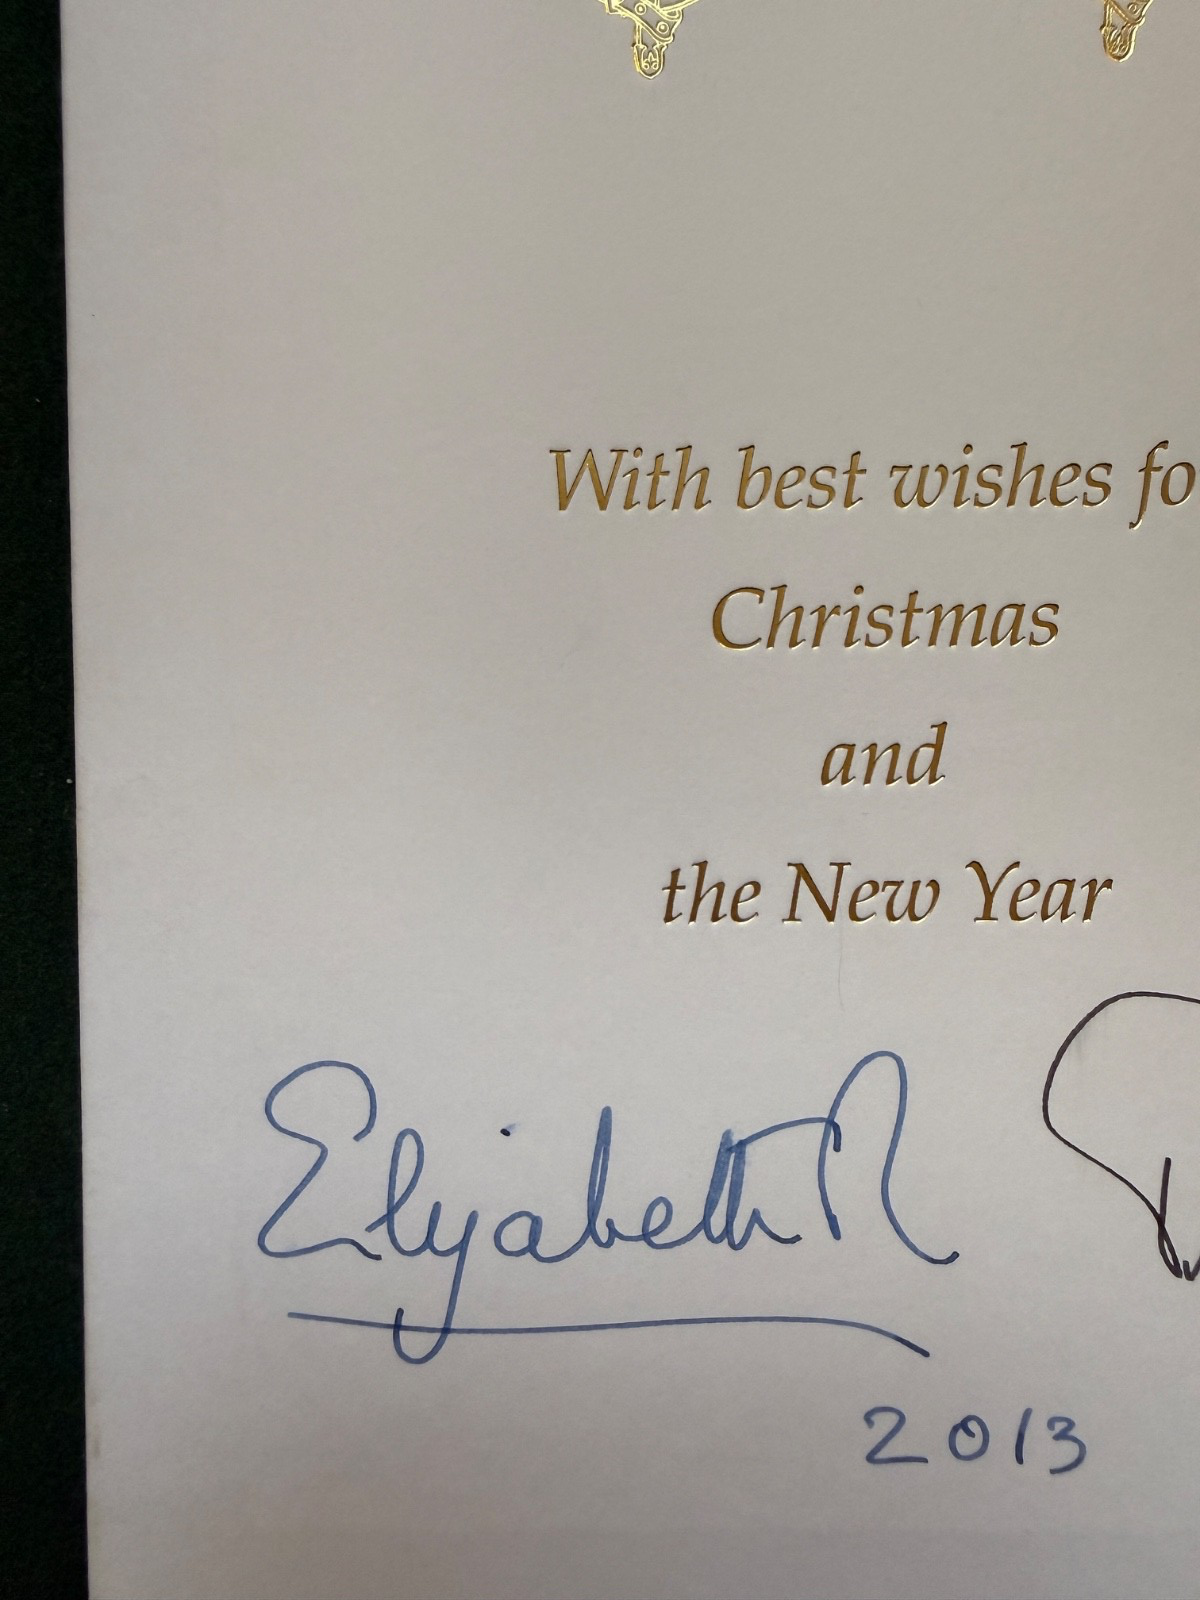 With best wishes fo
Christmas
and
the New Year
Elizabeth R
2013